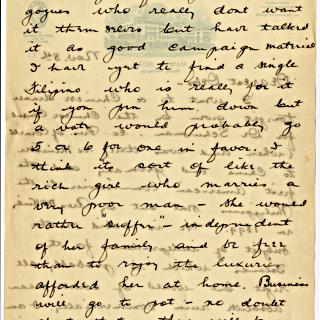 gogues who really dont want
it themselves but have talked
it as good campaign material
I have yet to find a single
Filipino who is really for it
if you pin him down but
a vote would probably go
5 or 6 for one in favor. I
think its sort of like the
rich girl who marries a
very poor man - she would
rather "suffer" - independent
of her family and be free
than to enjoy the luxuries
afforded her at home. Business
will go to pot - no doubt